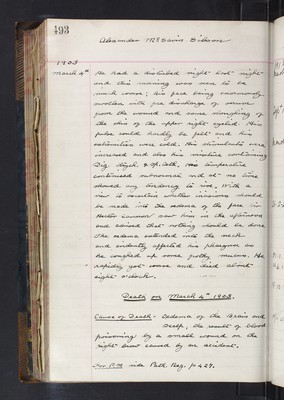 493
Alexander McGavin Gibson
1903
March 4th
He had a disturbed night last night
and this morning was seen to be
much worse; his face being enormously
swollen with free discharge of serum
from the wound and some sloughing of
the skin of the upper right eyelid. His
pulse could hardly be felt and his
extremities were cold. His stimulants were
increased and also his
Dig. Strych. His temperature
continued subnormal and at no time
showed any tendency to rise. With a
view to ascertain whether incisions should
be made into the oedema of the face Sir
Hector Cameron saw him in the afternoon
and advised that nothing should be done.
The oedema extended into the neck
and evidently affected his pharynx as
he coughed up some frothy mucus. He
rapidly got worse and died about
eight o'clock.
Death on March 4th 1903.
Cause of Death. Oedema of the Brain and
Scalp, the result of blood
poisoning by a small wound on the
right brow caused by an accident.
For P.M. vide Path. Reg. p 427.